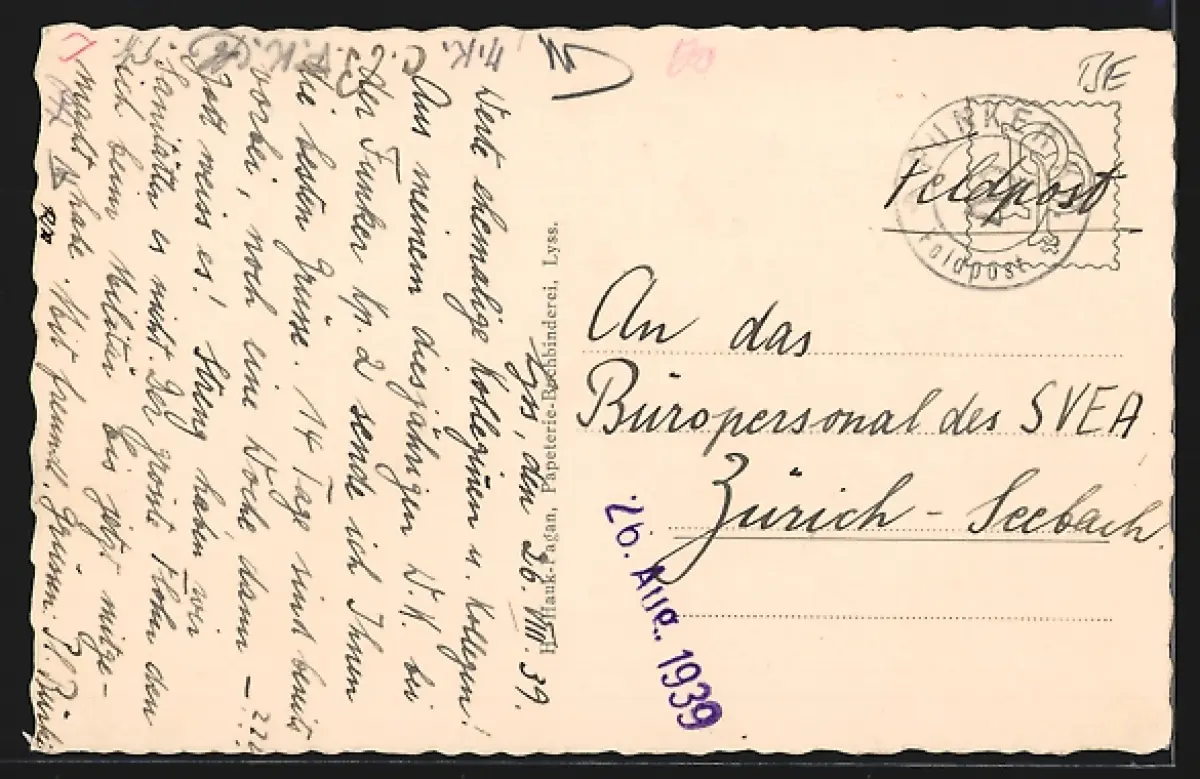 Lyss, den 26. VIII. 39.
Werte ehemalige Kolleginen u. Kollegen!
Aus meinem diesjährigen W.K. bei
der Funker Kp. 2 sende ich Ihnen
die besten Grüsse. 14 Tage sind bereits
vorbei, noch eine Woche dann – ???
Gott weiss es! Streng haben wir
es nicht. Der
ich beim Militär bis jetzt mitge-
macht habe. Mit freundl. Grüssen
H. Hauk-Pagan, Papeterie-Buchbinderei, Lyss.
BE
FUNKER
Feldpost
Feldpost
An das
Büropersonal des SVEA
Zürich – Seebach.
26. Aug. 1939